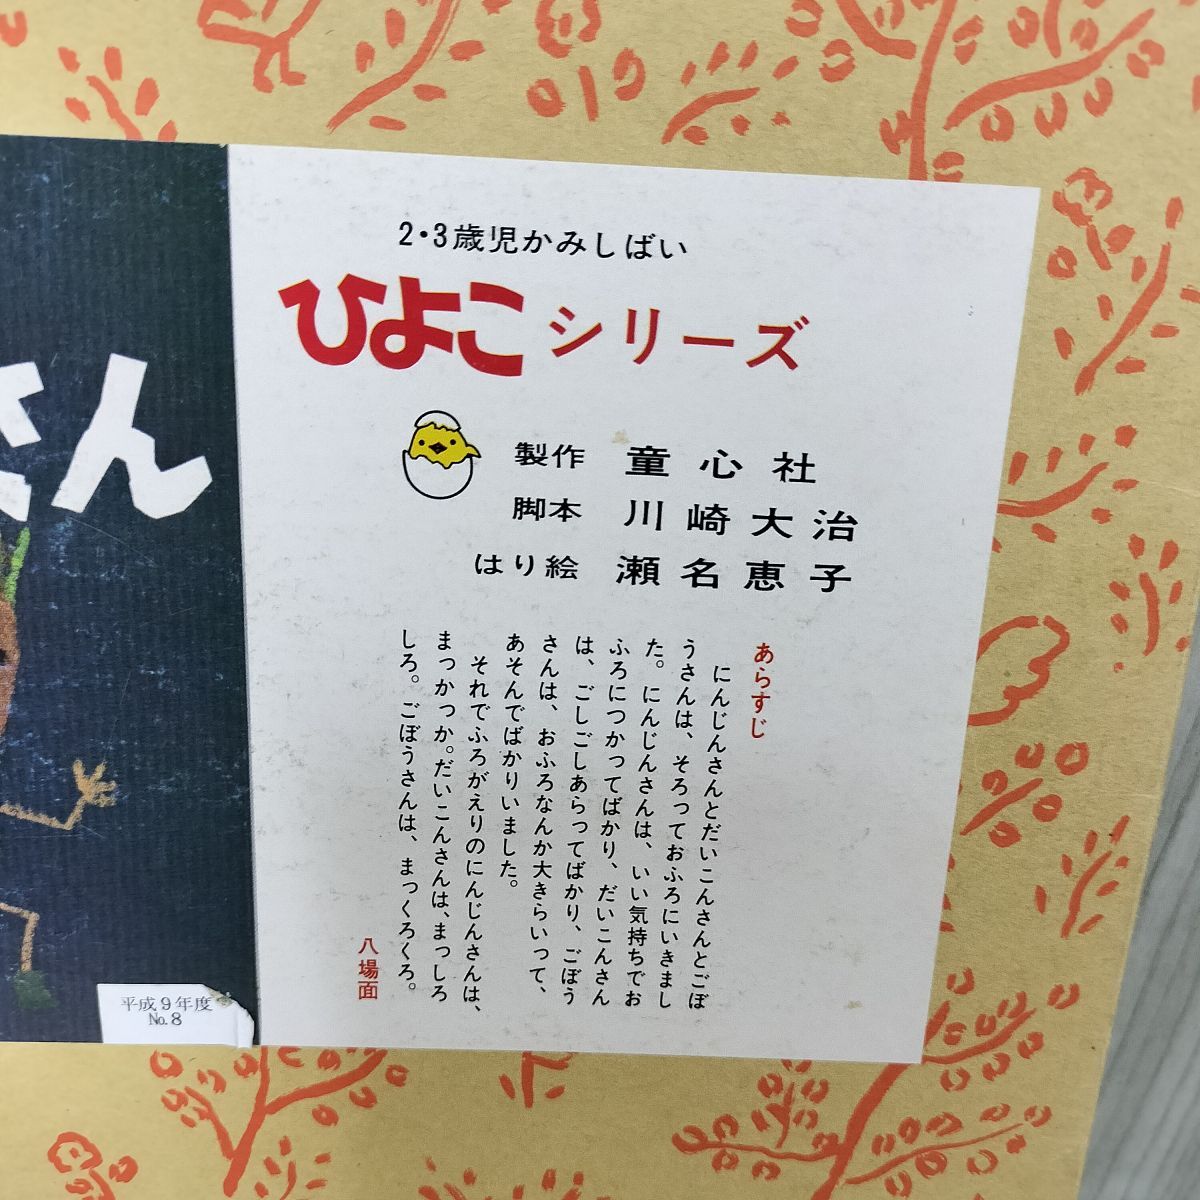 2・3歳児かみしばい
ひよこシリーズ
製作 童心社
脚本 川崎大治
はり絵 瀬名恵子
あらすじ
にんじんさんとだいこんさんとごぼ
うさんは、そろっておふろにいきまし
た。にんじんさんは、いい気持ちでお
ふろにつかってばかり、だいこんさん
は、ごしごしあらってばかり、ごぼう
さんは、おふろなんか大きらいって、
あそんでばかりいました。
それでふろがえりのにんじんさんは、
まっかっか。だいこんさんは、まっしろ
しろ。ごぼうさんは、まっくろくろ。
八場面
さん
平成9年度
No.8